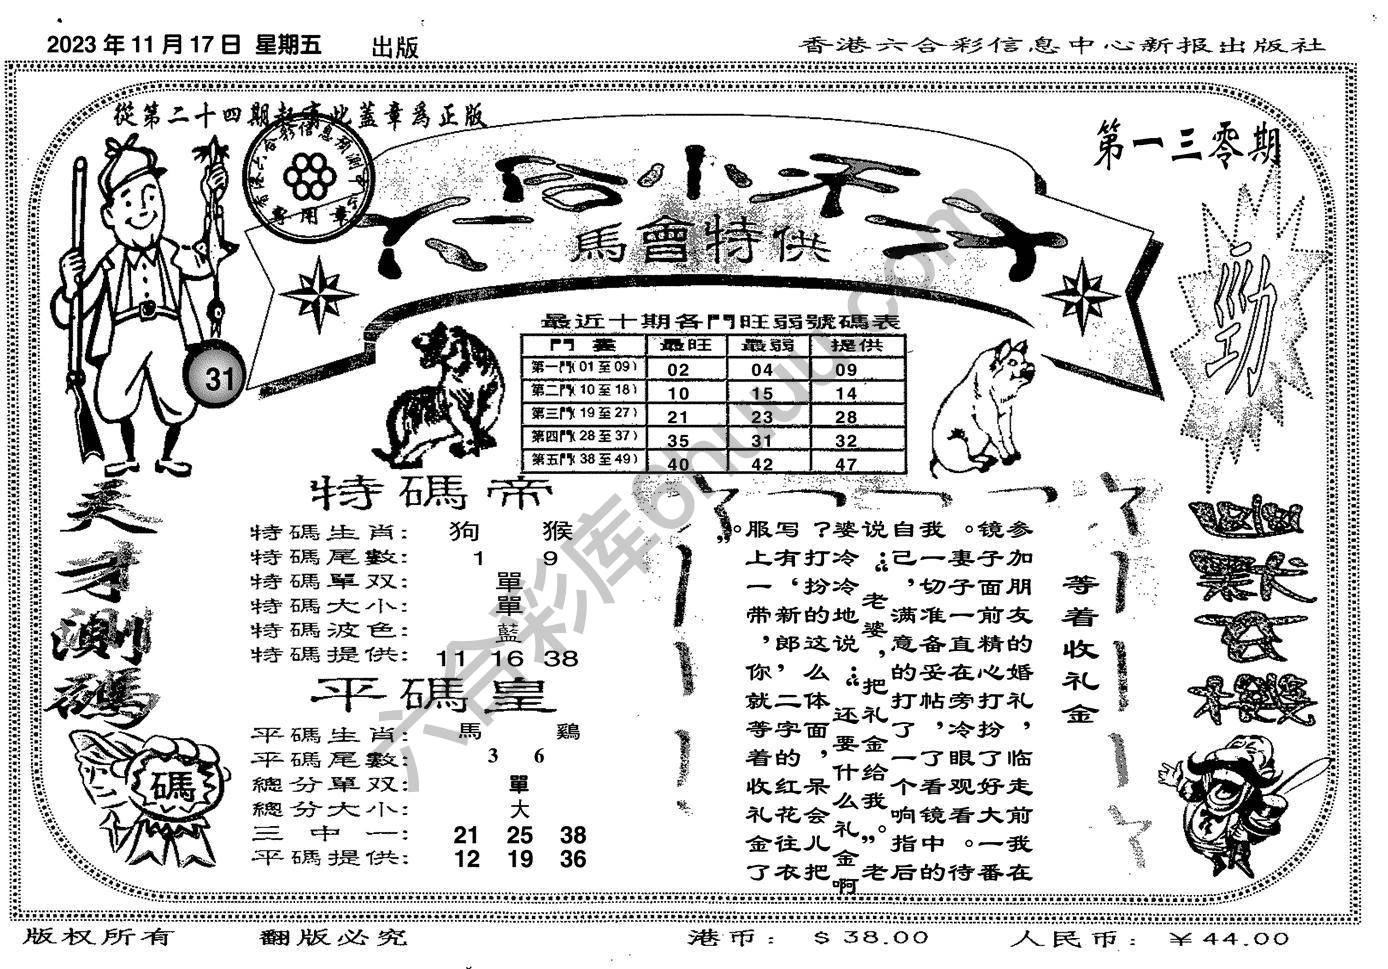 2023 年 11 月 17 日 星期五 出版
香港六合彩信息中心新报出版社
從第二十四期起寄此蓋章爲正版
第一三零期
香港六合彩信息预测中心
專用章
馬會特供
勁
31
最近十期各門旺弱號碼表
門 裏 最旺 最弱 提供
第一門(01至09) 02 04 09
第二門(10至18) 10 15 14
第三門(19至27) 21 23 28
第四門(28至37) 35 31 32
第五門(38至49) 40 42 47
天才測碼
碼
特碼帝
特碼生肖: 狗 猴
特碼尾數: 1 9
特碼單双: 單
特碼大小: 單
特碼波色: 藍
特碼提供: 11 16 38
平碼皇
平碼生肖: 馬 鷄
平碼尾數: 3 6
總分單双: 單
總分大小: 大
三中一: 21 25 38
平碼提供: 12 19 36
等着收礼金
参加朋友的婚礼，临走前我在
镜子面前精心打扮了好大一番
。妻子一直在旁冷眼观看。待
我一切准备妥帖，了看镜中的
自己，满意的打了一个响指后
说：“老婆，把礼金给我。”老
婆冷冷地说：“还要什么礼金啊
？打扮的这么体面，呆会儿把
写有‘新郎’二字的红花往衣
服上一带，你就等着收礼金了
。”
版权所有 翻版必究 港币: $38.00 人民币: ￥44.00
六合彩库6huu.com